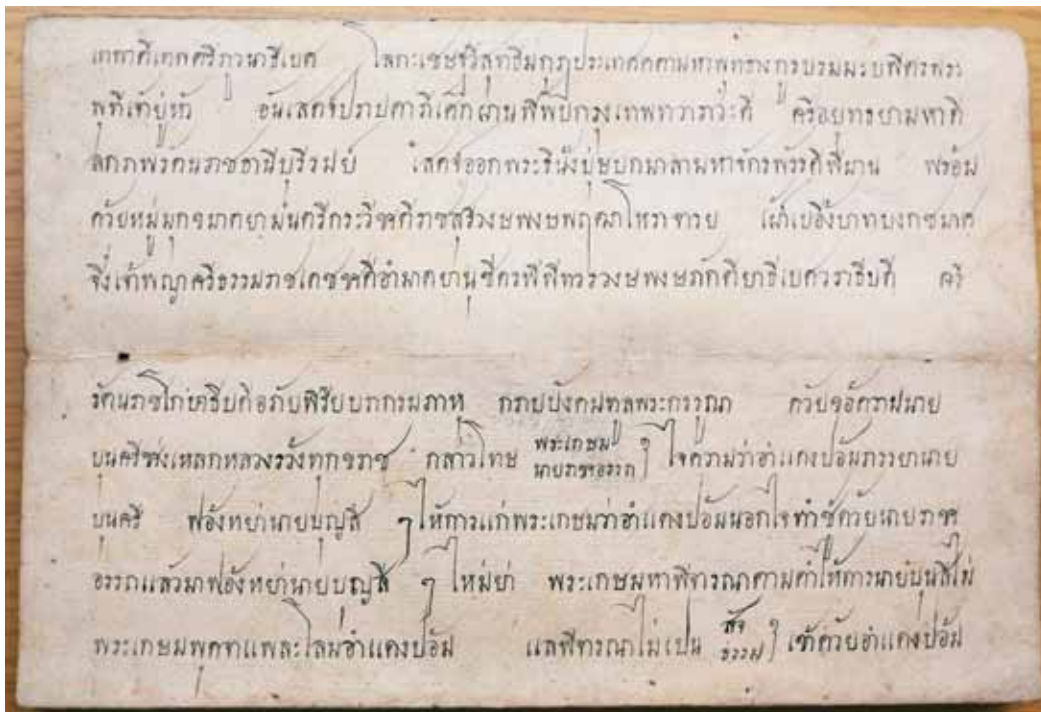 เทพาดิเทพตรีภูวนาธิเบศ โลกะเชษฐวิสุทธิมกุฏประเทศคตามหาพุทธางกูรบรมมะบพิตรพระ
พุทิเจ้าอยู่หัว อันเสดจ์ปราบดาภิเศกผ่านพิพภพกรุงเทพทวาราวะดี ศรีอยุทธยามหาดิ
ลกภพนพรัตนราชธานีบุรีรมย์ เสดจ์ออกพระธินั่งบุษบกมาลามหาจักรพัรรดิพิมาน พร้อม
ด้วยหมู่มุกขมาตยามนตรีกระวีชาติราชสุริวงษพงษพฤฒาโหราจารย เฝ้าเบื้องบาทบงกชมาศ
จึ่งเจ้าพญาศรีธรรมราชเดชชาติอำมาตยานุชิตรพิพิทวรวงษพงษภักดิยาธิเบศวราธิบดี ศรี
รัตนราชโกษาธิบดีอภัยพิรียบรากรมภาหุ กราบบังคมทูลพระกรรุณา ด้วยข้อความนาย
บุนศรีช่างเหลกหลวงร้องทุกขราช กล่าวโทษ พระเกษม นายราชาอรรถ ๆ ใจความว่าอำแดงป้อมภรรยานาย
บุนศรี ฟ้องหย่านายบุญศรี ๆ ให้การแก่พระเกษมว่าอำแดงป้อมนอกใจทำชู้ด้วยนายราชา
อรรถแล้วมาฟ้องหย่านายบุญศรี ๆ ไม่หย่า พระเกษมหาพิจารณาตามคำให้การนายบุนศรีไม่
พระเกษมพูดจาแพละโลมอำแดงป้อม แลพิจารณาไม่เปน สัจ ธรรม ๆ เข้าด้วยอำแดงป้อม